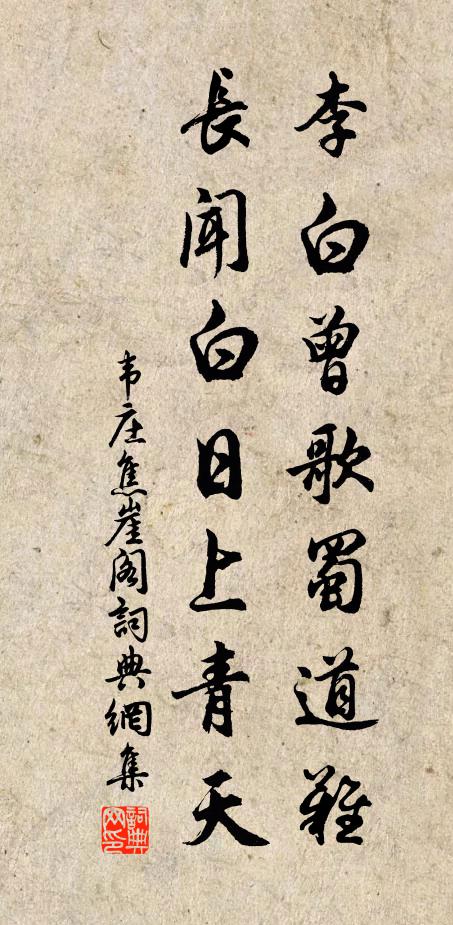 李白曾歌蜀道難
長聞白日上青天
韦庄焦崖阁詞典網集
詞典网印